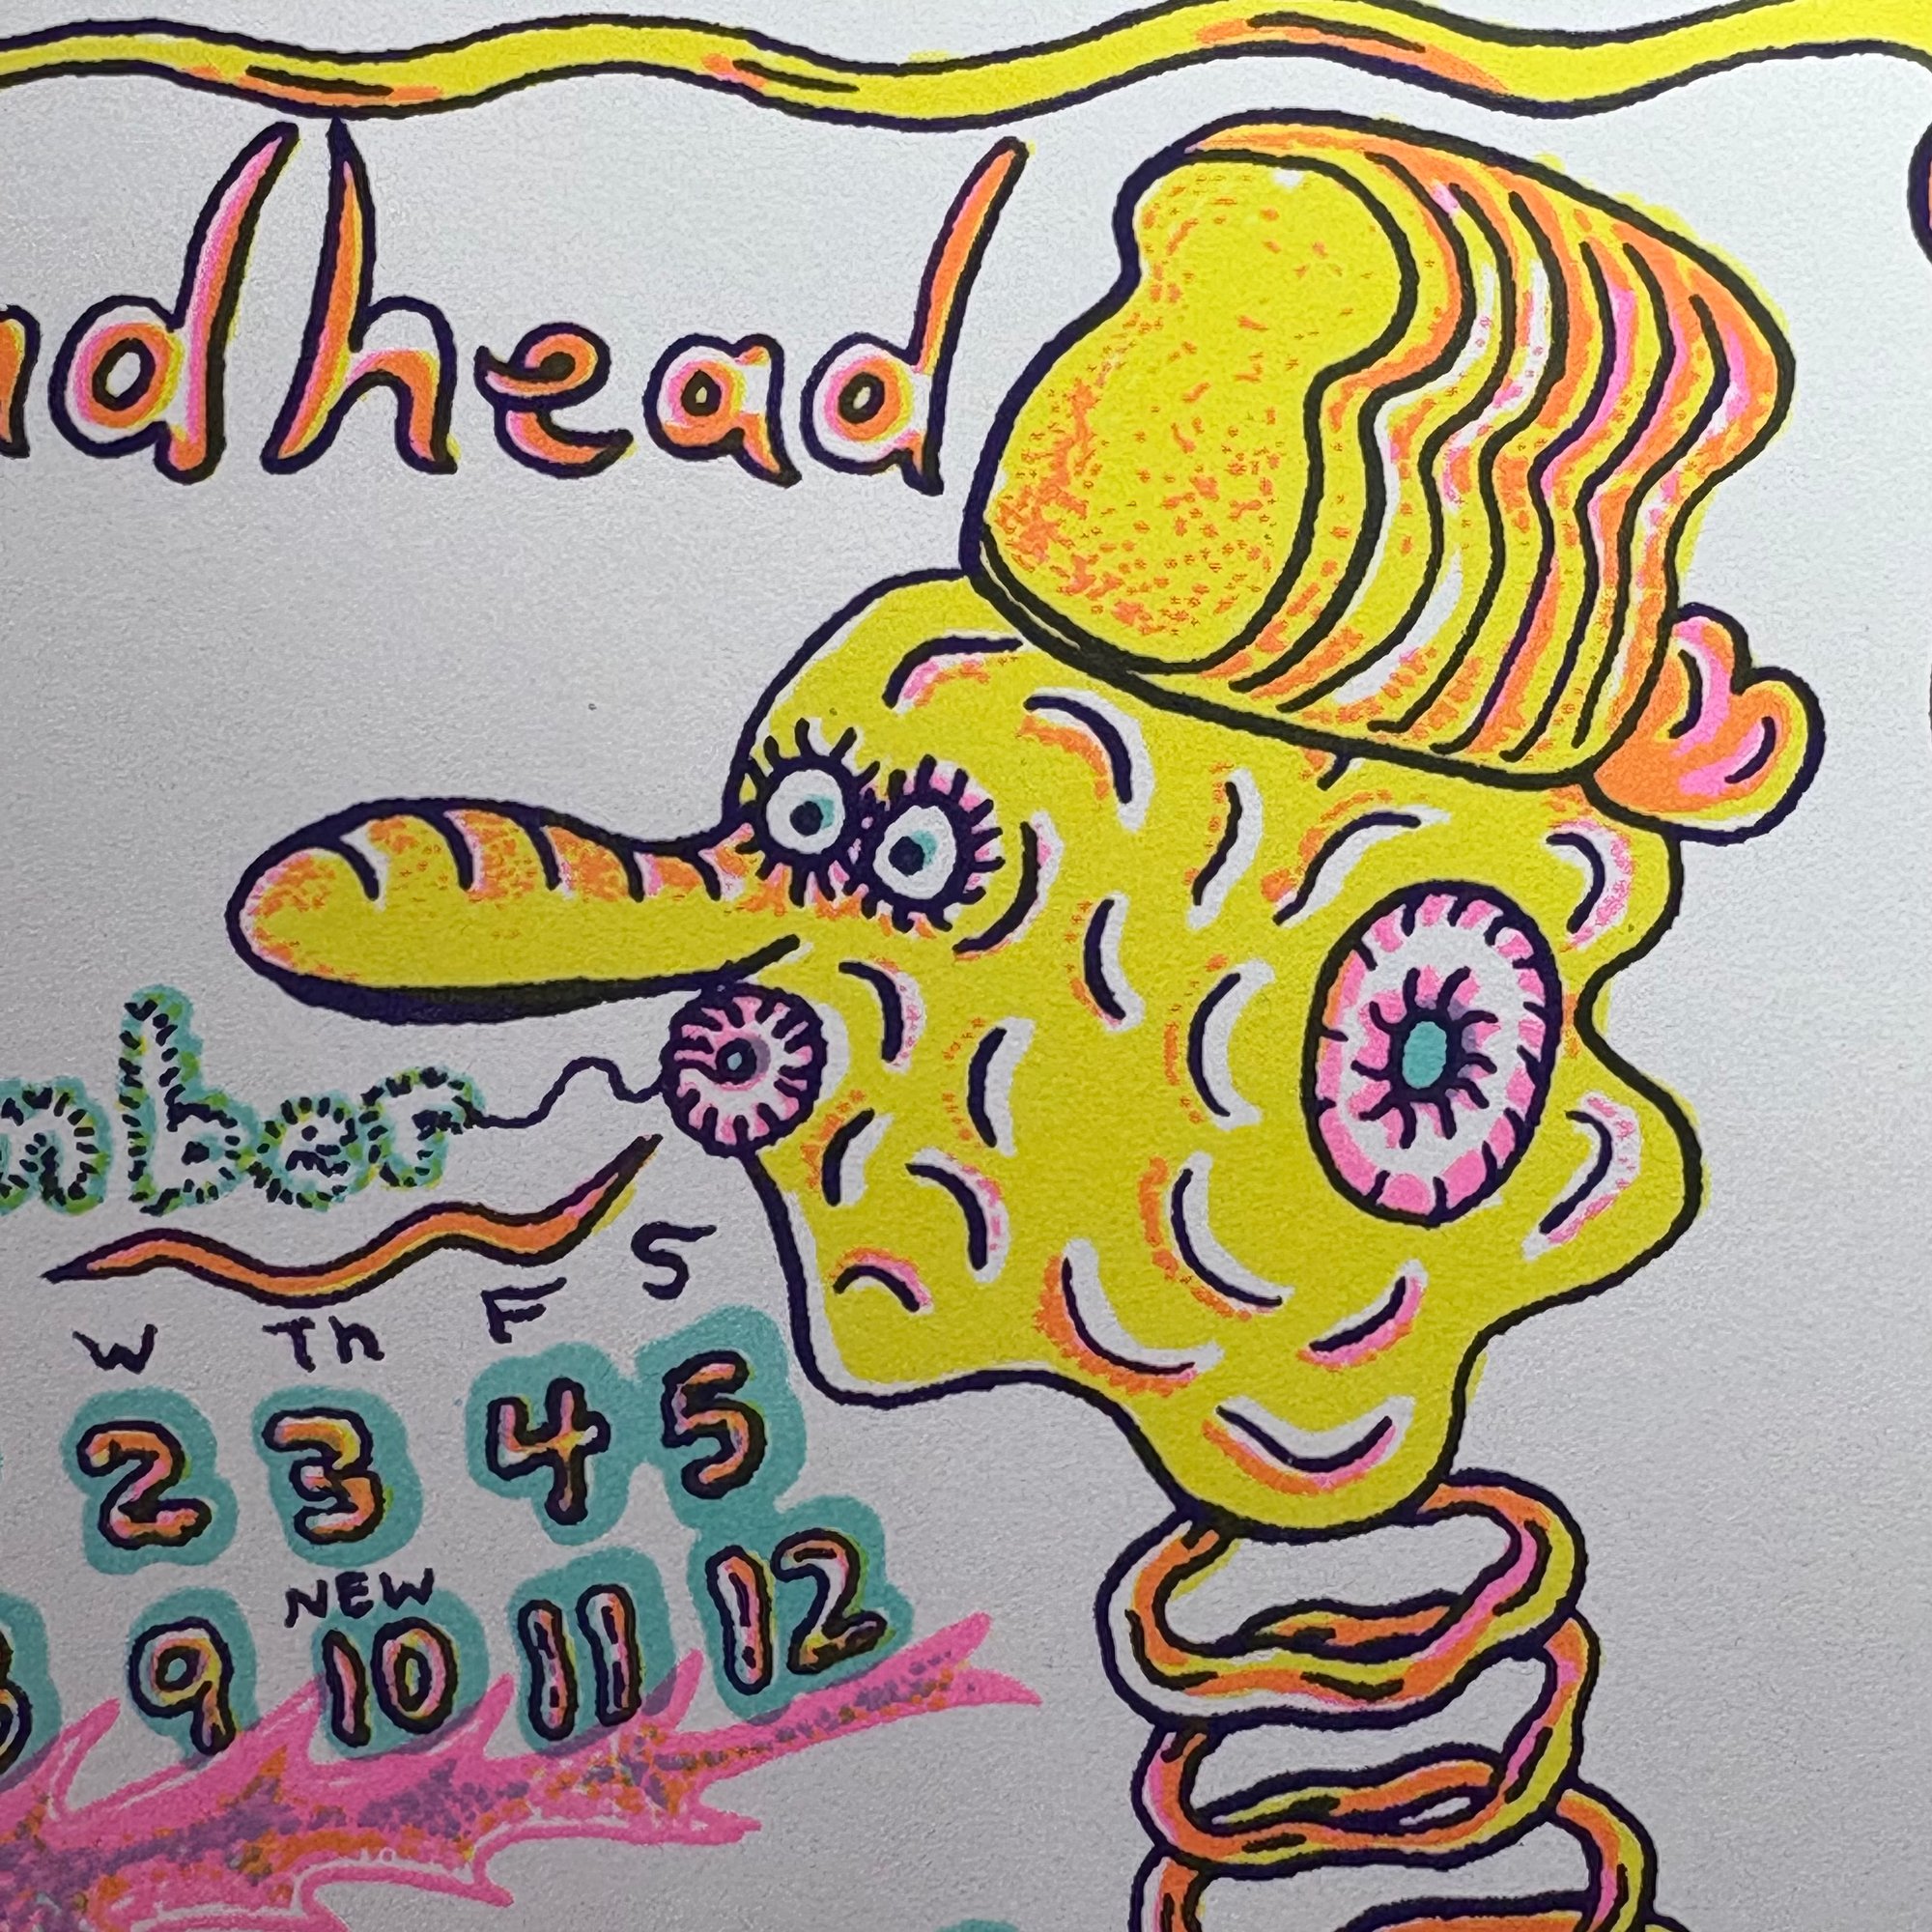 adhead
mber
W Th F S
2 3 4 5
NEW
9 10 11 12